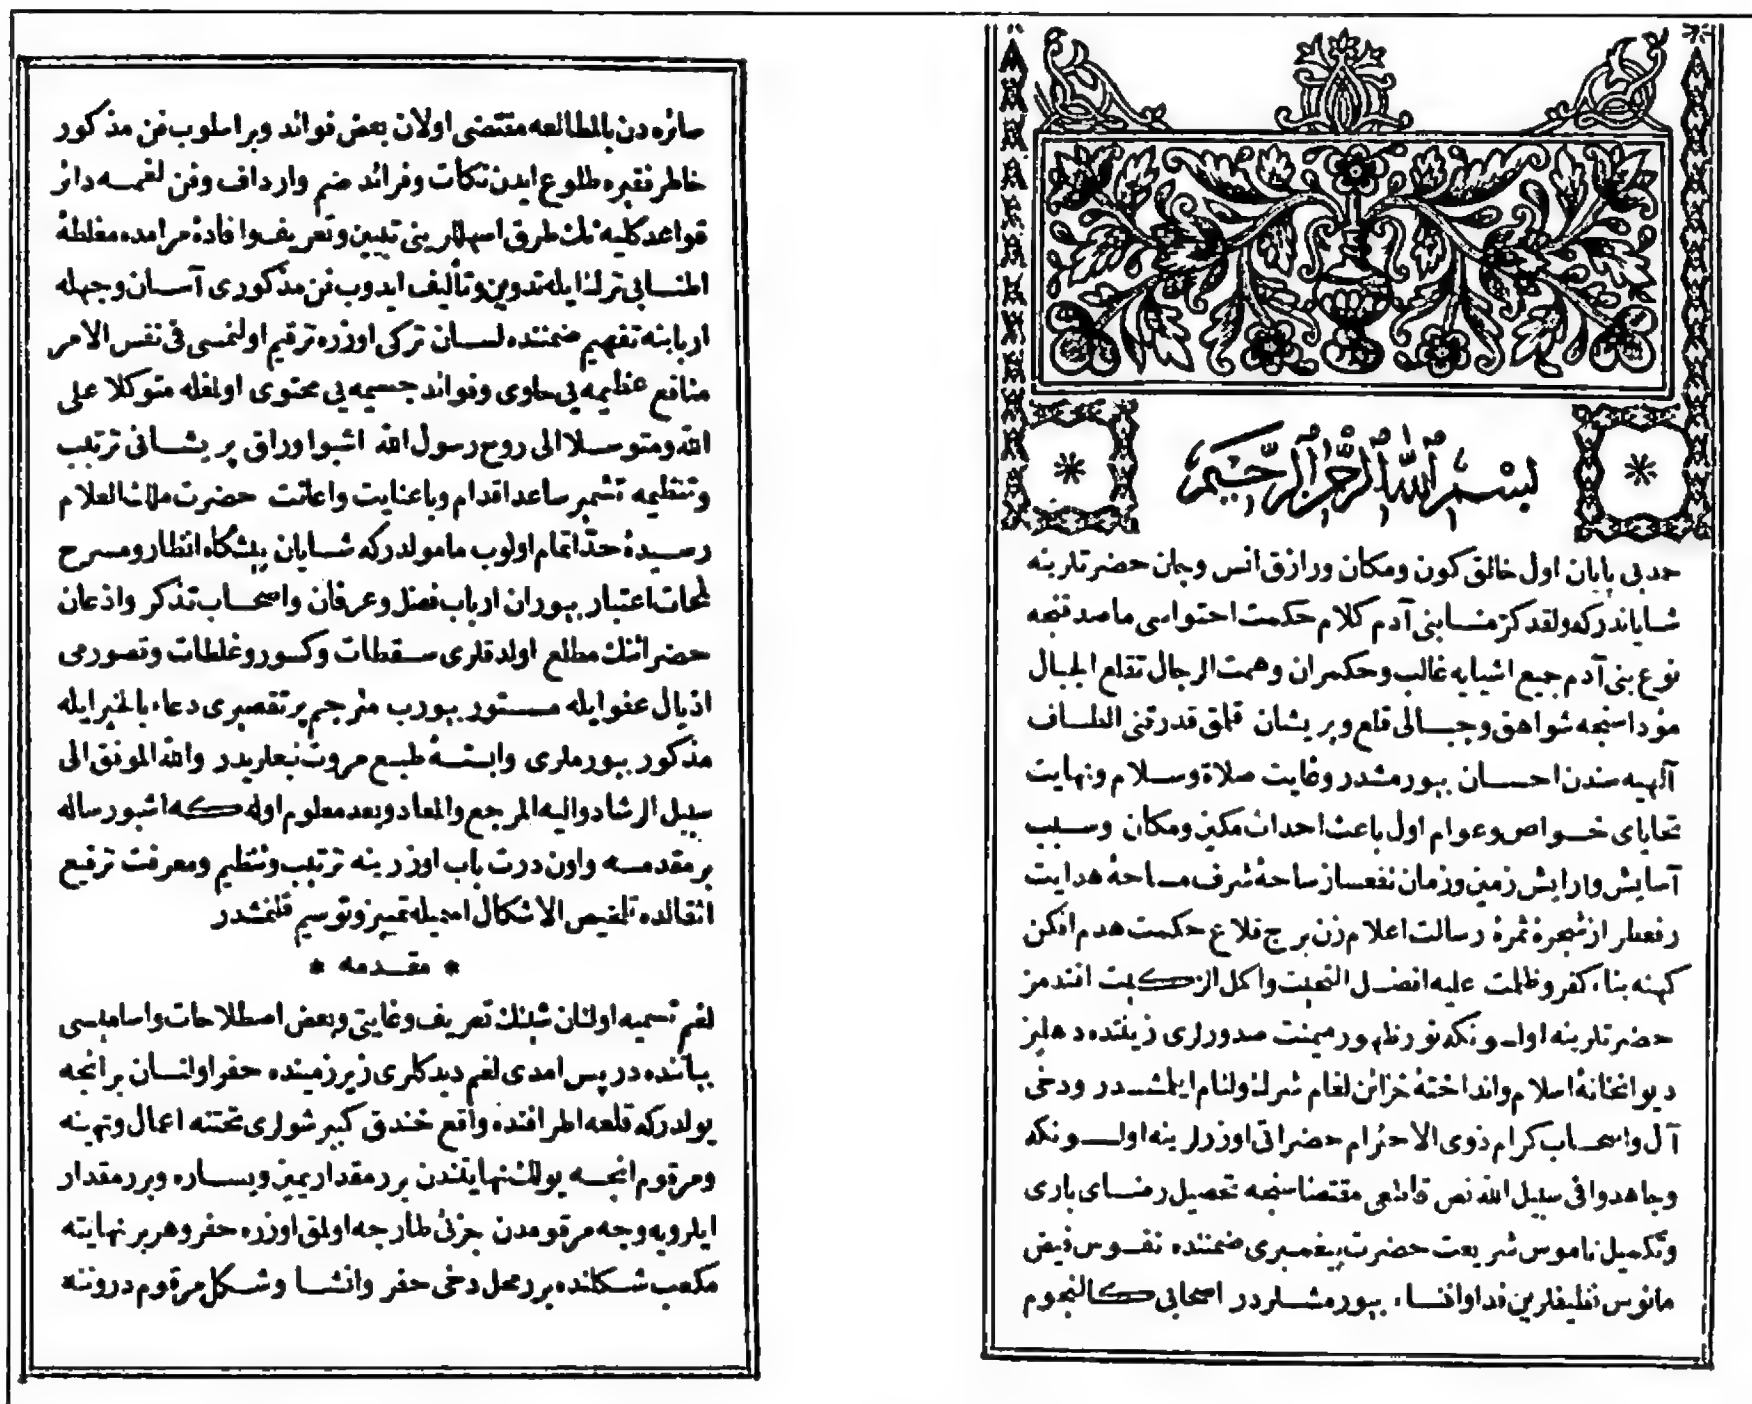 بسم الله الرحمن الرحيم
حمد بى پايان اول خالق كون ومكان ورازق انس وجان حضرتلرينه
شاياندركه ولقد كرمنا بنى آدم كلام حكمت احتواسى ماصدقنجه
نوع بنى آدم جميع اشيايه غالب وحكمران وهمت الرجال تقلع الجبال
مؤداسنجه شواهق وجبالى قلع وپريشان قلمق قدرتنى الطاف
آلهيه سندن احسان بيورمشدر وغايت صلاة وسلام ونهايت
تحاياى خواص وعوام اول باعث احداث مكين ومكان وسبب
آسايش وارايش زمين وزمان نفعساز ساحهٔ شرف مساحهٔ هدايت
رفعطراز شجرهٔ ثمرهٔ رسالت اعلام زن برج قلاع حكمت هدم افكن
كهنه بناء كفر وظلمت عليه افضل التحيت واكمل التركيت افندمز
حضرتلرينه اولسونكه نور ظهور ميمنت صدورلرى زينتده دهليز
ديوانخانهٔ اسلام وانداختهٔ خزائن لغام شرك ولئام ايلمشدر ودخى
آل واصحاب كرام ذوى الاحترام حضراتى اوزرلرينه اولسونكه
وجاهدوا فى سبيل الله نص قاطعى مقتضاسنجه تحصيل رضاى بارى
وتكميل ناموس شريعت حضرت پيغمبرى ضمننده نفوس فيض
مانوس نظيفلرين فدا وافناء بيورمشلردر اصحابى كالنجوم
سائره دن بالمطالعه مقتضى اولان بعض فوائد وبراسلوب فن مذكور
خاطر فقيره طلوع ايدن نكات وفرائد ضم وارداف وفن لغمه دائر
قواعد كليه نك طرق اسهللرينى تبيين وتعريف وافادهٔ مرامده مغلطهٔ
اطنابى ترك ايله تدوين وتأليف ايدوب فن مذكورى آسان وجهله
اربابنه تفهيم ضمننده لسان تركى اوزره ترقيم اولنمسى فى نفس الامر
منافع عظيمه يى حاوى وفوائد جسيمه يى محتوى اولمغله متوكلا على
الله ومتوسلا الى روح رسول الله اشبو اوراق پريشانى ترتيب
وتنظيمه تشمير ساعد اقدام وباعنايت واعانت حضرت ملك العلام
رسيدهٔ حد اتمام اولوب مامولدركه شايان پيشكاه انظار ومسرح
لمحات اعتبار بيوران ارباب فضل وعرفان واصحاب تذكر واذعان
حضراتنك مطلع اولدقلرى سقطات وكسور وغلطات وقصورمى
اذيال عفو ايله مستور بيورب مترجم پرتقصيرى دعاء بالخير ايله
مذكور بيورملرى وابستهٔ طبع مروت نبعلريدر والله الموفق الى
سبيل الرشاد واليه المرجع والمعاد وبعد معلوم اوله كه اشبو رساله
بر مقدمه واون درت باب اوزرينه ترتيب وتنظيم ومعرفت ترفيع
اثقالده تلخيص الاشكال اسميله تمييز وتوسيم قلنمشدر
* مقدمه *
لغم تسميه اولنان شيئك تعريف وغايتى وبعض اصطلاحات واساميسى
بياننده در پس امدى لغم ديدكلرى زير زمينده حفر اولنان بر انجه
يولدركه قلعه اطرافنده واقع خندق كبير شولرى تحتنه اعمال وتهيئه
ومرقوم انجه يولك نهايتندن برر مقدار يمين ويساره وبرر مقدار
ايلرويه وجه مرقومدن جزئى طارجه اولمق اوزره حفر وهر بر نهايتنه
مكعب شكلنده برر محل دخى حفر وانشا وشكل مرقوم دروننه